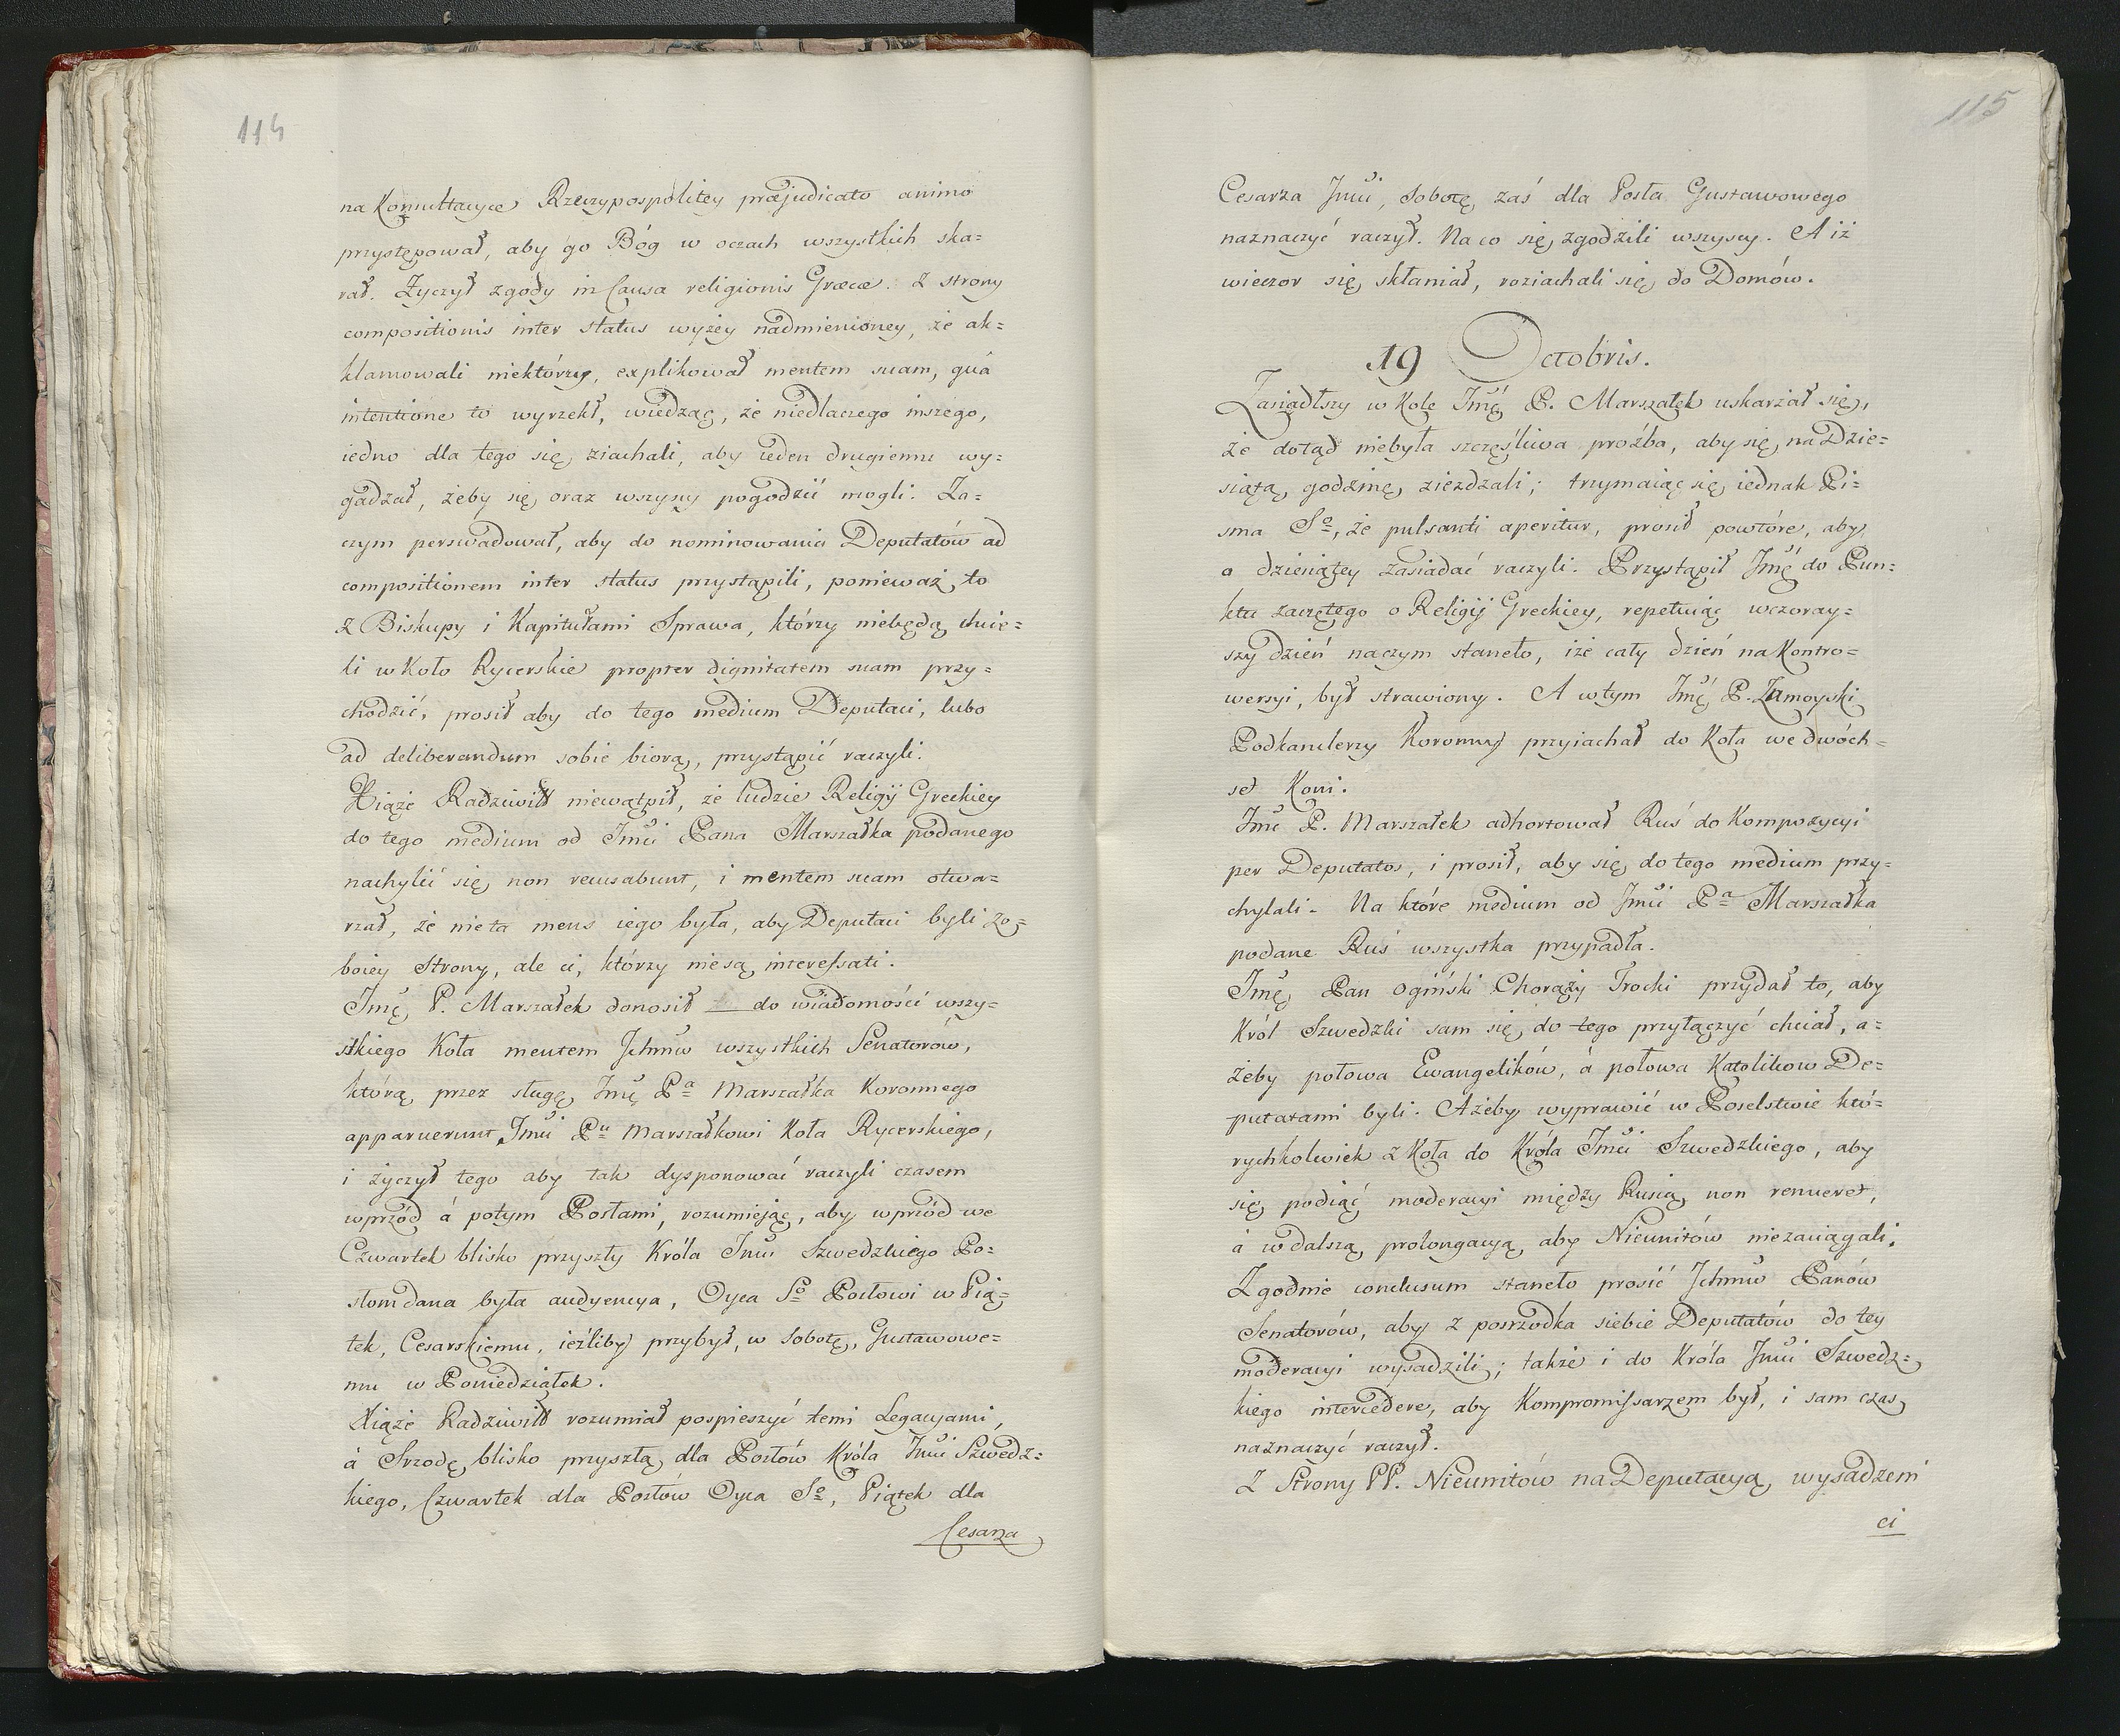 114
na Konsultacye Rzeczypospolitey præjudicato animo
przystępował, aby go Bóg w oczach wszystkich ska=
rał. Życzył zgody in Causa religionis Græcæ. Z strony
compositionis inter status wyżey nadmienioney, że ak=
klamowali niektórzy, explikował mentem suam, quá
intentione to wyrzekł, wiedząc, że niedlaczego inszego,
iedno dla tego się ziachali, aby ieden drugiemu wy=
gadzał, żeby się oraz wszyscy pogodzić mogli. Za=
czym perswadował, aby do nominowania Deputatów ad
compositionem inter status przystąpili, ponieważ to
z Biskupy i Kapitułami Sprawa, którzy niebędą chcie=
li w Koło Rycerskie propter dignitatem suam przy=
chodzić, prosił aby do tego medium Deputaci, lubo
ad deliberandum sobie biorą, przystąpić raczyli.
Xiąże Radziwiłł niewątpił, że ludzie Religij Greckiey
do tego medium od Jmci Pana Marszałka podanego
nachylić się non recusabunt, i mentem suam otwa=
rzał, że nie ta mens iego była, aby Deputaci byli zo=
boiey Strony, ale ci, którzy niesą interessati.
Jmć P. Marszałek donosił do wiadomości wszy=
stkiego Koła mentem Jchmw wszystkich Senatorów,
którą przez sługę Jmć Pa Marszałka Koronnego
apparuerunt Jmci Pu Marszałkowi Koła Rycerskiego,
i życzył tego aby tak dysponować raczyli czasem
wprzód á potym Posłami, rozumiejąc, aby wprzód we
Czwartek blisko przyszły Króla Jmci Szwedzkiego Po=
słom dana była audyencya, Oyca So Posłowi w Pią=
tek, Cesarskiemu, ieźliby przybył, w Sobotę, Gustawowe=
mu w Poniedziałek.
Xiąże Radziwiłł rozumiał pospieszyć temi Legacyami,
á Srzodę blisko przyszłą dla Posłów Króla Jmci Szwedz=
kiego, Czwartek dla Posłów Oyca So, Piątek dla
Cesarza
115
Cesarza Jmci, Sobotę zaś dla Posła Gustawowego
naznaczyć raczył. Na co się zgodzili wszyscy. A iż
wieczor się skłaniał, roziachali się do Domów.
19 Octobris.
Zasiadłszy w Kole Jmć P. Marszałek uskarżał się,
że dotąd niebyła szczęśliwa proźba, aby się na Dzie=
siątą godzinę zieżdzali; trzymaiąc się iednak Pi=
sma So, że pulsanti aperitur, prosił powtóre, aby
o dziesiątey zasiadać raczyli. Przystąpił Jmć do Pun=
ktu zaczętego o Religij Greckiey, repetuiąc wczoray=
szy dzień na czym staneło, iże cały dzień na Kontro=
wersyi, był strawiony. A w tym Jmć P. Zamoyski
Podkanclerzy Koronny przyiachał do Koła we dwóch=
set Koni.
Jmć P. Marszałek adhortował Ruś do Kompozycyi
per Deputatos, i prosił, aby się do tego medium przy=
chylali. Na które medium od Jmci Pa Marszałka
podane Ruś wszystka przypadła.
Jmć Pan Ogiński Chorąży Trocki przydał to, aby
Król Szwedzki sam się do tego przyłączyć chciał, a=
żeby połowa Ewangelików, á połowa Katolikow De=
putatami byli. A żeby wyprawić w Poselstwie któ=
rychkolwiek z Koła do Króla Jmci Szwedzkiego, aby
się podiąć moderacyi między Rusią non renueret,
á w dalszą prolongacyą aby Nieunitów niezaciągali.
Zgodnie conclusum staneło prosić Jchmw Panów
Senatorów, aby z posrzodka siebie Deputatów do tey
moderacyi wysadzili; także i do Króla Jmci Szwedz=
kiego intercedere, aby Kompromissarzem był, i sam czas
naznaczyć raczył.
Z Strony PP. Nieunitów na Deputacyą wysadzeni
ci